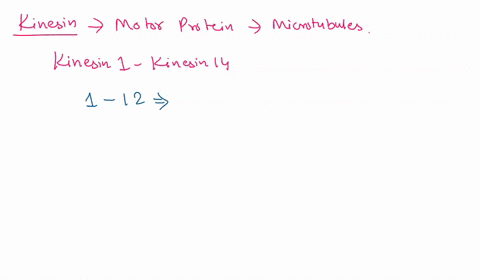 Kinesin → Motor Protein → Microtubules.
Kinesin 1 - Kinesin 14
1 - 12 ⇒